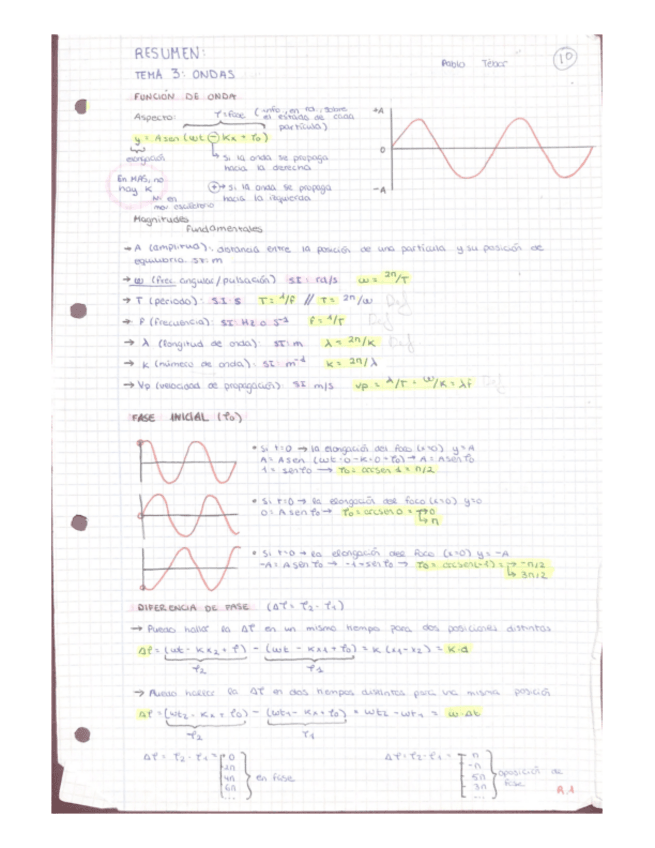 RESUMEN:
Pablo Tébar
10
TEMA 3: ONDAS
FUNCIÓN DE ONDA
Aspecto: φ=Fase (info, en rd, sobre el estado de cada partícula)
y = A sen (ωt ⊖ Kx + φ₀)
elongación
↳ Si la onda se propaga hacia la derecha
En MAS, no hay K
⊕→ si la onda se propaga hacia la izquierda
Ni en mov oscilatorio
+A
0
-A
Magnitudes Fundamentales
→ A (amplitud): distancia entre la posición de una partícula y su posición de equilibrio. SI: m
→ ω (frec angular/pulsación) SI: rd/s ω = 2π/T
→ T (período): SI: s T = 1/f // T = 2π/ω Def
→ F (frecuencia): SI Hz o s⁻¹ f = 1/T Def
→ λ (longitud de onda): SI: m λ = 2π/K Def
→ K (número de onda): SI: m⁻¹ K = 2π/λ
→ Vp (velocidad de propagación): SI m/s vp = λ/T = ω/K = λf Def
FASE INICIAL (φ₀)
• Si t=0 → la elongación del foco (x=0) y=A
A = A sen (ωt·0 - K·0 + φ₀) → A = A senφ₀
1 = senφ₀ → φ₀ = arcsen 1 = π/2
• Si t=0 → la elongación del foco (x=0) y=0
0 = A sen φ₀ → φ₀ = arcsen 0 = → 0
↳ π
• Si t=0 → la elongación del foco (x=0) y = -A
-A = A sen φ₀ → -1 = sen φ₀ → φ₀ = arcsen(-1) = → -π/2
↳ 3π/2
DIFERENCIA DE FASE (Δφ = φ₂ - φ₁)
→ Puedo hallar la Δφ en un mismo tiempo para dos posiciones distintas
Δφ = (ωt - Kx₂ + φ) - (ωt - Kx₁ + φ₀) = K (x₁ - x₂) = K·d
φ₂ φ₁
→ Puedo hallar la Δφ en dos tiempos distintos para una misma posición
Δφ = (ωt₂ - Kx + φ₀) - (ωt₁ - Kx + φ₀) = ωt₂ - ωt₁ = ω·Δt
φ₂ φ₁
Δφ = φ₂ - φ₁ = 0
2π
4π
6π
...
en fase
Δφ = φ₂ - φ₁ = π
-π
5π
3π
...
oposición de fase
R.1